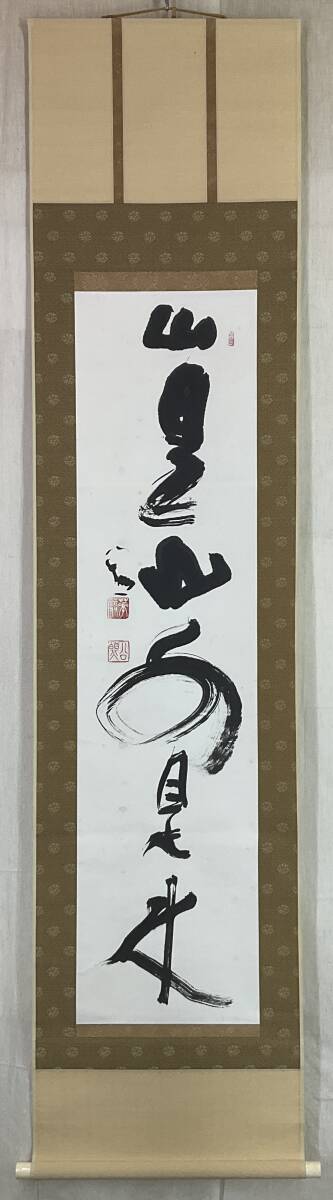 山是山水是水